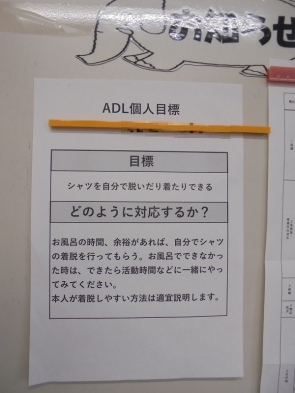 お知らせ
ADL個人目標
目標
シャツを自分で脱いだり着たりできる
どのように対応するか？
お風呂の時間、余裕があれば、自分でシャツ
の着脱を行ってもらう。お風呂でできなかっ
た時は、できたら活動時間などに一緒にやっ
てみてください。
本人が着脱しやすい方法は適宜説明します。